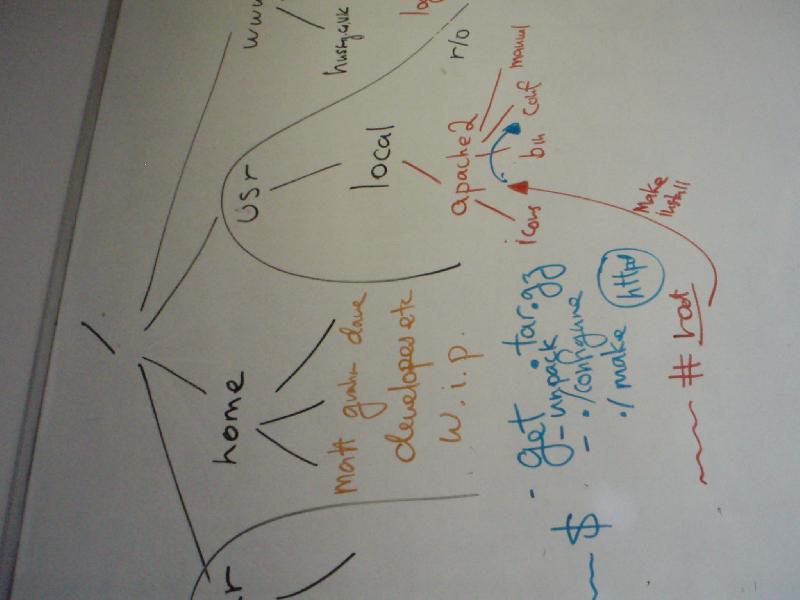 /
home
usr
www
r
matt graham dave
developers etc
w.i.p.
local
r/o
apache2
icons
bin
conf
manual
$ - get .tar.gz
- unpack
- ./configure
./make
httpd
# root
Make
install